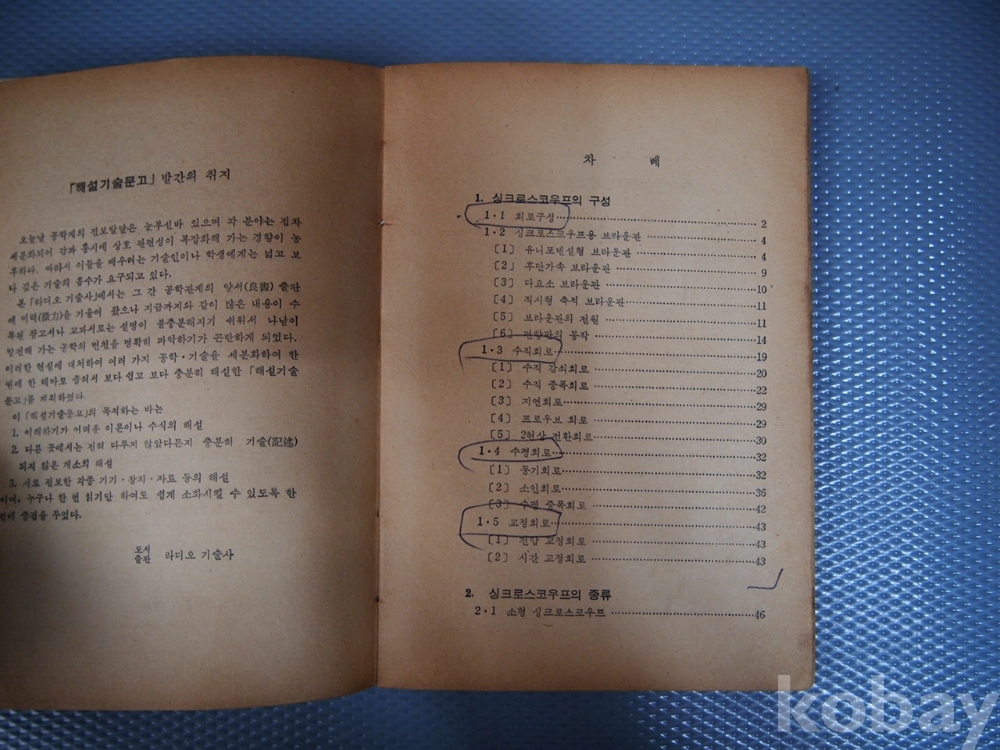 「해설기술문고」 발간의 취지
오늘날 공학계의 진보발달은 눈부신바 있으며 각 분야는 점차
세분화되어 감과 동시에 상호 관련성이 복잡화해 가는 경향이 농
후하다. 따라서 이들을 배우려는 기술인이나 학생에게는 넓고 보
다 깊은 기술의 흡수가 요구되고 있다.
본 「라디오 기술사」에서는 그 간 공학관계의 양서(良書) 출판
에 미력(微力)을 기울여 왔으나 지금까지와 같이 많은 내용이 수
록된 참고서나 교과서로는 설명이 불충분해지기 쉬워서 나날이
발전해 가는 공학의 변천을 명확히 파악하기가 곤란하게 되었다.
이러한 현실에 대처하여 여러 가지 공학·기술을 세분화하여 한
권에 한 테마로 줄여서 보다 쉽고 보다 충분히 해설한 「해설기술
문고」를 계획하였다.
이 「해설기술문고」의 목적하는 바는
1. 이해하기가 어려운 이론이나 수식의 해설
2. 다른 곳에서는 전혀 다루지 않았다든지 충분히 기술(記述)
되지 않은 개소의 해설
3. 새로 진보한 각종 기기·장치·자료 등의 해설
이며, 누구나 한 번 읽기만 하여도 쉽게 소화시킬 수 있도록 한
권에 중점을 두었다.
도서출판 라디오 기술사
차 례
1. 싱크로스코우프의 구성
1·1 회로구성 2
1·2 싱크로스코우프용 브라운관 4
〔1〕 유니포텐셜형 브라운관 4
〔2〕 후단가속 브라운관 9
〔3〕 다요소 브라운관 10
〔4〕 직시형 축적 브라운관 11
〔5〕 브라운관의 전원 11
〔6〕 편향판의 동작 14
1·3 수직회로 19
〔1〕 수직 감쇠회로 20
〔2〕 수직 증폭회로 22
〔3〕 지연회로 29
〔4〕 프로우브 회로 29
〔5〕 2현상 전환회로 30
1·4 수평회로 32
〔1〕 동기회로 32
〔2〕 소인회로 36
〔3〕 수평 증폭회로 42
1·5 교정회로 43
〔1〕 전압 교정회로 43
〔2〕 시간 교정회로 43
2. 싱크로스코우프의 종류
2·1 소형 싱크로스코우프 46
kobay